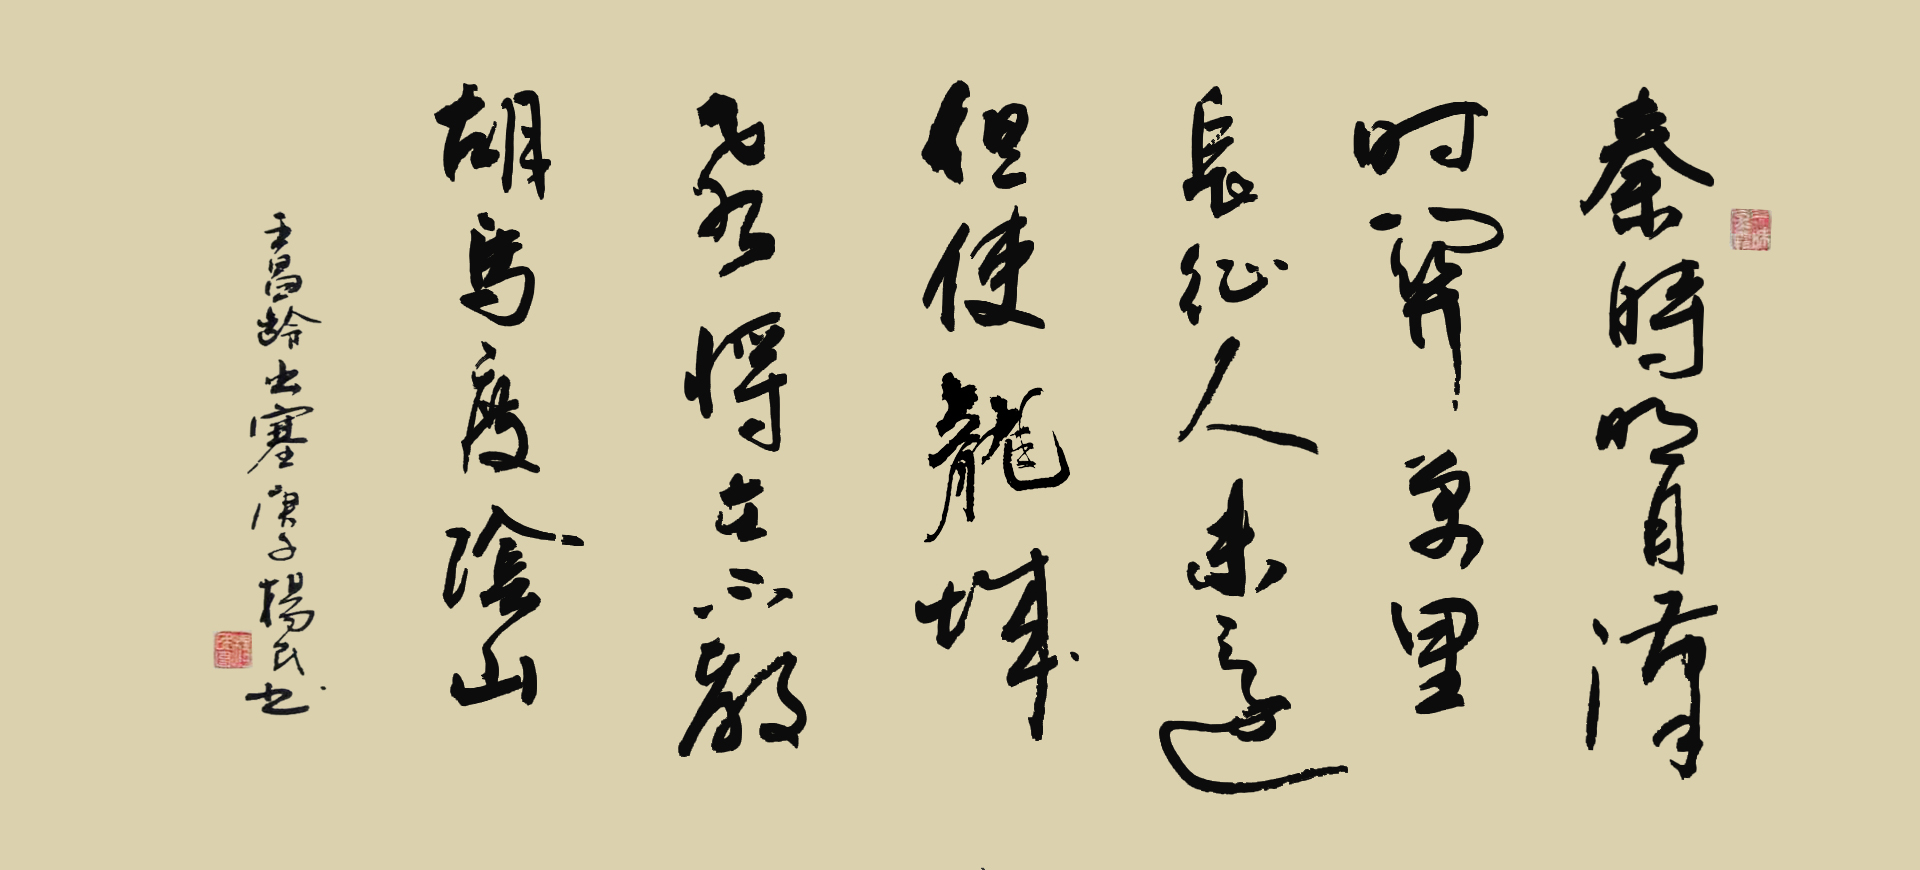 秦時明月漢
时關萬里
長征人未還
但使龍城
飛將在不教
胡馬度陰山
王昌齡出塞庚子楊民书